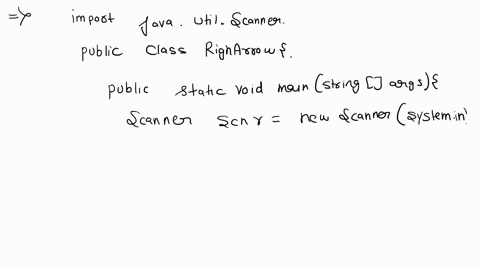 => import java.util.Scanner.
public class RighArrow{.
public static void main(string [] args){
Scanner scnr = new Scanner(system.in)